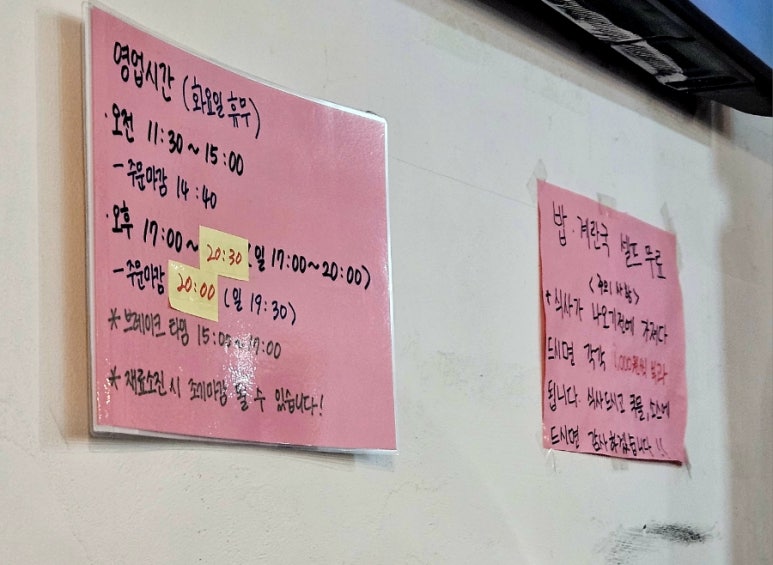 영업시간 (화요일 휴무)
· 오전 11:30 ~ 15:00
- 주문마감 14:40
· 오후 17:00 ~ 20:30 (일 17:00 ~ 20:00)
- 주문마감 20:00 (일 19:30)
* 브레이크 타임 15:00 ~ 17:00
* 재료소진 시 조기마감 될 수 있습니다!
밥 · 계란국 셀프 무료
<주의사항>
* 식사가 나오기전에 가져다
드시면 각각 1,000원씩 부과
됩니다. 식사드시고 국물, 소스에
드시면 감사하겠습니다!!